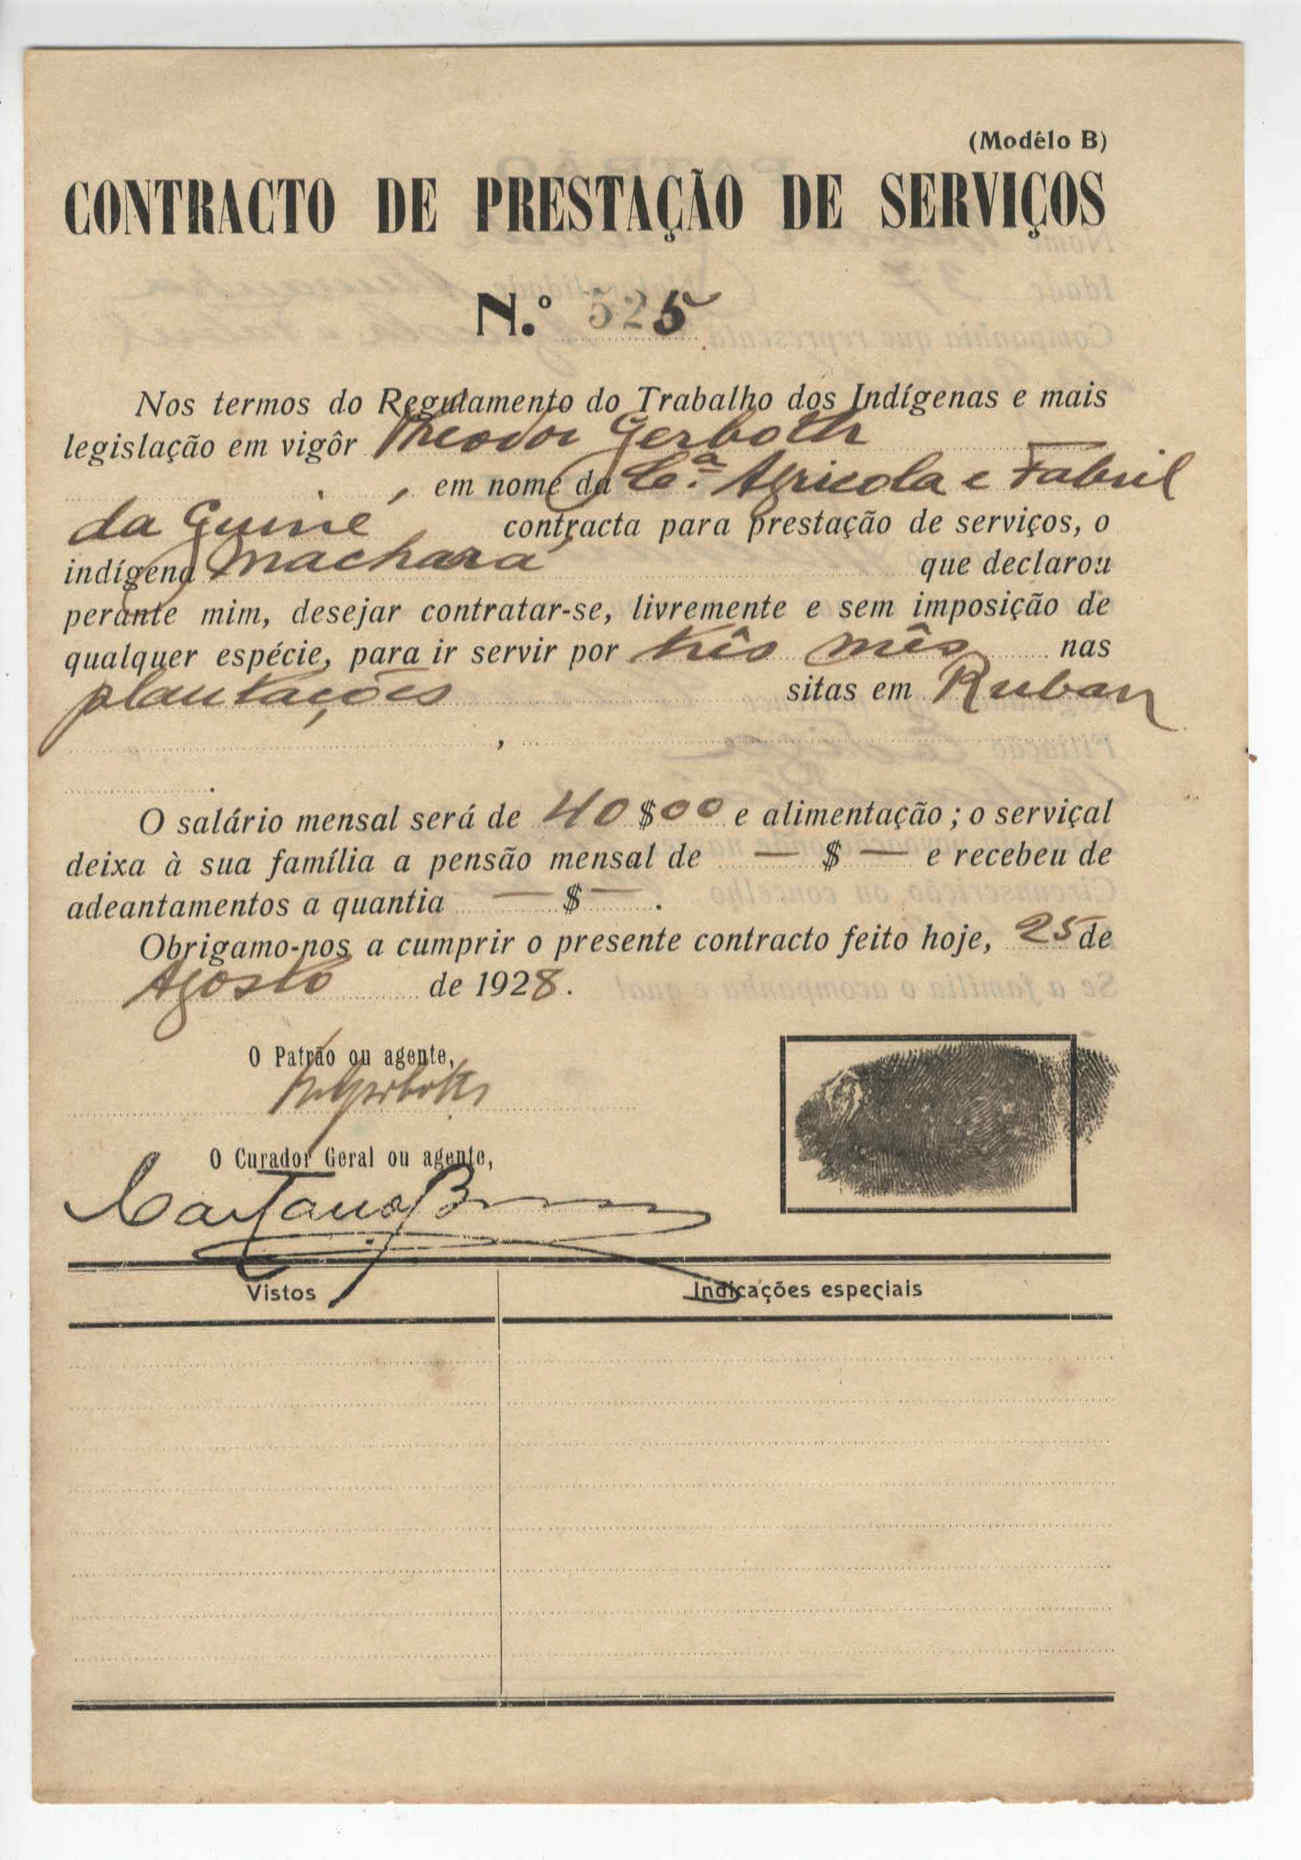 (Modêlo B)
CONTRACTO DE PRESTAÇÃO DE SERVIÇOS
N.º 525
Nos termos do Regulamento do Trabalho dos Indígenas e mais
legislação em vigôr Theodor Gerboth
, em nome da Cª. Agricola e Fabril
da Guiné contracta para prestação de serviços, o
indígena Machará que declarou
perante mim, desejar contratar-se, livremente e sem imposição de
qualquer espécie, para ir servir por três mês nas
plantações sitas em Ruban
,
.
O salário mensal será de 40$00 e alimentação; o serviçal
deixa à sua família a pensão mensal de — $ — e recebeu de
adeantamentos a quantia — $ — .
Obrigamo-nos a cumprir o presente contracto feito hoje, 25 de
Agosto de 1928.
O Patrão ou agente,
O Curador Geral ou agente,
Caetano
Vistos Indicações especiais